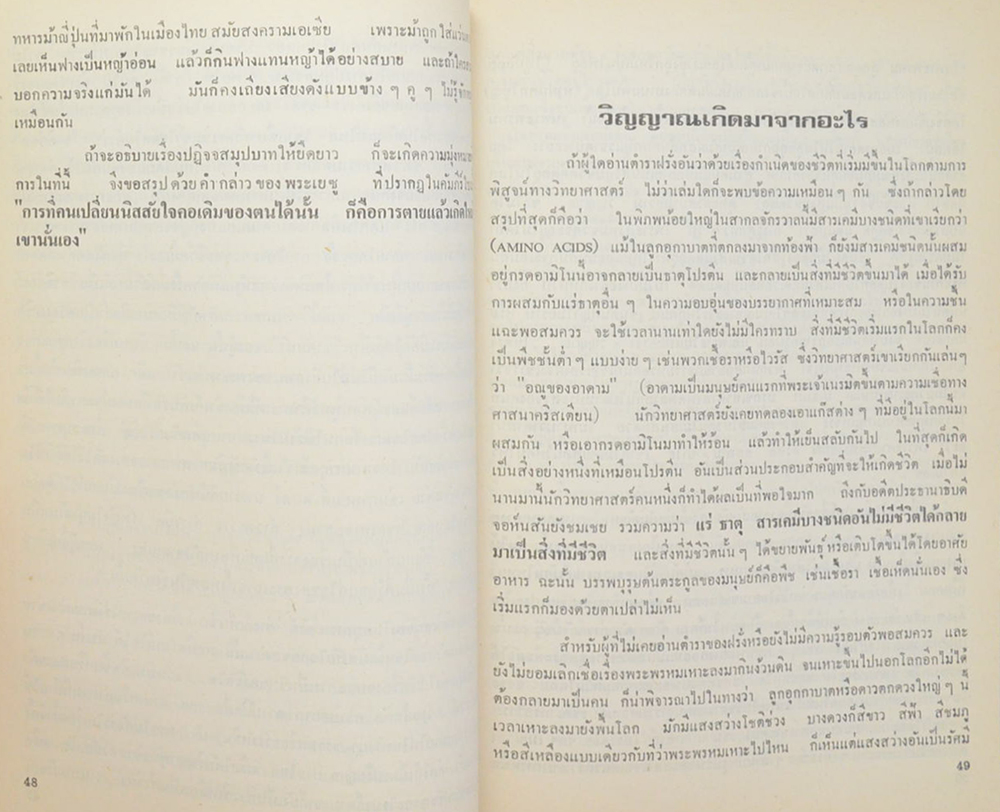 ทหารม้าญี่ปุ่นที่มาพักในเมืองไทย สมัยสงครามเอเซีย เพราะม้าถูกใส่แว่น
เลยเห็นฟางเป็นหญ้าอ่อน แล้วก็กินฟางแทนหญ้าได้อย่างสบาย และถ้าใคร
บอกความจริงแก่มันได้ มันก็คงเถียงเสียงดังแบบข้าง ๆ คู ๆ ไม่รู้
เหมือนกัน
ถ้าจะอธิบายเรื่องปฏิจจสมุปบาทให้ยืดยาว ก็จะเกิดความมุ่งหมาย
การในที่นี้ จึงขอสรุปด้วย คำกล่าว ของ พระเยซู ที่ปรากฏในคัมภีร์
"การที่คนเปลี่ยนนิสสัยใจคอเดิมของตนได้นั้น ก็คือการตายแล้วเกิดใหม่
เขานั่นเอง"
48
วิญญาณเกิดมาจากอะไร
ถ้าผู้ใดอ่านตำราฝรั่งอันว่าด้วยเรื่องกำเนิดของชีวิตที่เริ่มมีขึ้นในโลกตามการ
พิสูจน์ทางวิทยาศาสตร์ ไม่ว่าเล่มใดก็จะพบข้อความเหมือน ๆ กัน ซึ่งถ้ากล่าวโดย
สรุปที่สุดก็คือว่า ในพิภพน้อยใหญ่ในสากลจักรวาลนี้มีสารเคมีบางชนิดที่เขาเรียกว่า
(AMINO ACIDS) แม้ในลูกอุกาบาตที่ตกลงมาจากท้องฟ้า ก็ยังมีสารเคมีชนิดนั้นผสม
อยู่กรดอามิโนนี้อาจกลายเป็นธาตุโปรตีน และกลายเป็นสิ่งที่มีชีวิตขึ้นมาได้ เมื่อได้รับ
การผสมกับแร่ธาตุอื่น ๆ ในความอบอุ่นของบรรยากาศที่เหมาะสม หรือในความชื้น
แฉะพอสมควร จะใช้เวลานานเท่าใดยังไม่มีใครทราบ สิ่งที่มีชีวิตเริ่มแรกในโลกก็คง
เป็นพืชชั้นต่ำ ๆ แบบง่าย ๆ เช่นพวกเชื้อราหรือไวรัส ซึ่งวิทยาศาสตร์เขาเรียกกันเล่นๆ
ว่า "อณูของอาดาม" (อาดามเป็นมนุษย์คนแรกที่พระเจ้าเนรมิตขึ้นตามความเชื่อทาง
ศาสนาคริสเตียน) นักวิทยาศาสตร์ยังเคยทดลองเอาแก๊สต่าง ๆ ที่มีอยู่ในโลกนี้มา
ผสมกัน หรือเอากรดอามิโนมาทำให้ร้อน แล้วทำให้เย็นสลับกันไป ในที่สุดก็เกิด
เป็นสิ่งอย่างหนึ่งที่เหมือนโปรตีน อันเป็นส่วนประกอบสำคัญที่จะให้เกิดชีวิต เมื่อไม่
นานมานี้นักวิทยาศาสตร์คนหนึ่งก็ทำได้ผลเป็นที่พอใจมาก ถึงกับอดีตประธานาธิบดี
จอห์นสันยังชมเชย รวมความว่า แร่ ธาตุ สารเคมีบางชนิดอันไม่มีชีวิตได้กลาย
มาเป็นสิ่งที่มีชีวิต และสิ่งที่มีชีวิตนั้น ๆ ได้ขยายพันธุ์ หรือเติบโตขึ้นได้โดยอาศัย
อาหาร ฉะนั้น บรรพบุรุษต้นตระกูลของมนุษย์ก็คือพืช เช่นเชื้อรา เชื้อเห็ดนั่นเอง ซึ่ง
เริ่มแรกก็มองด้วยตาเปล่าไม่เห็น
สำหรับผู้ที่ไม่เคยอ่านตำราของฝรั่งหรือยังไม่มีความรู้รอบตัวพอสมควร และ
ยังไม่ยอมเลิกเชื่อเรื่องพระพรหมเหาะลงมากินง้วนดิน จนเหาะขึ้นไปนอกโลกอีกไม่ได้
ต้องกลายมาเป็นคน ก็น่าพิจารณาไปในทางว่า ลูกอุกกาบาตหรือดาวตกดวงใหญ่ ๆ นี้
เวลาเหาะลงมายังพื้นโลก มักมีแสงสว่างโชติช่วง บางดวงก็สีขาว สีฟ้า สีชมภู
หรือสีเหลืองแบบเดียวกับที่ว่าพระพรหมเหาะไปไหน ก็เห็นแต่แสงสว่างอันเป็นรัศมี
49